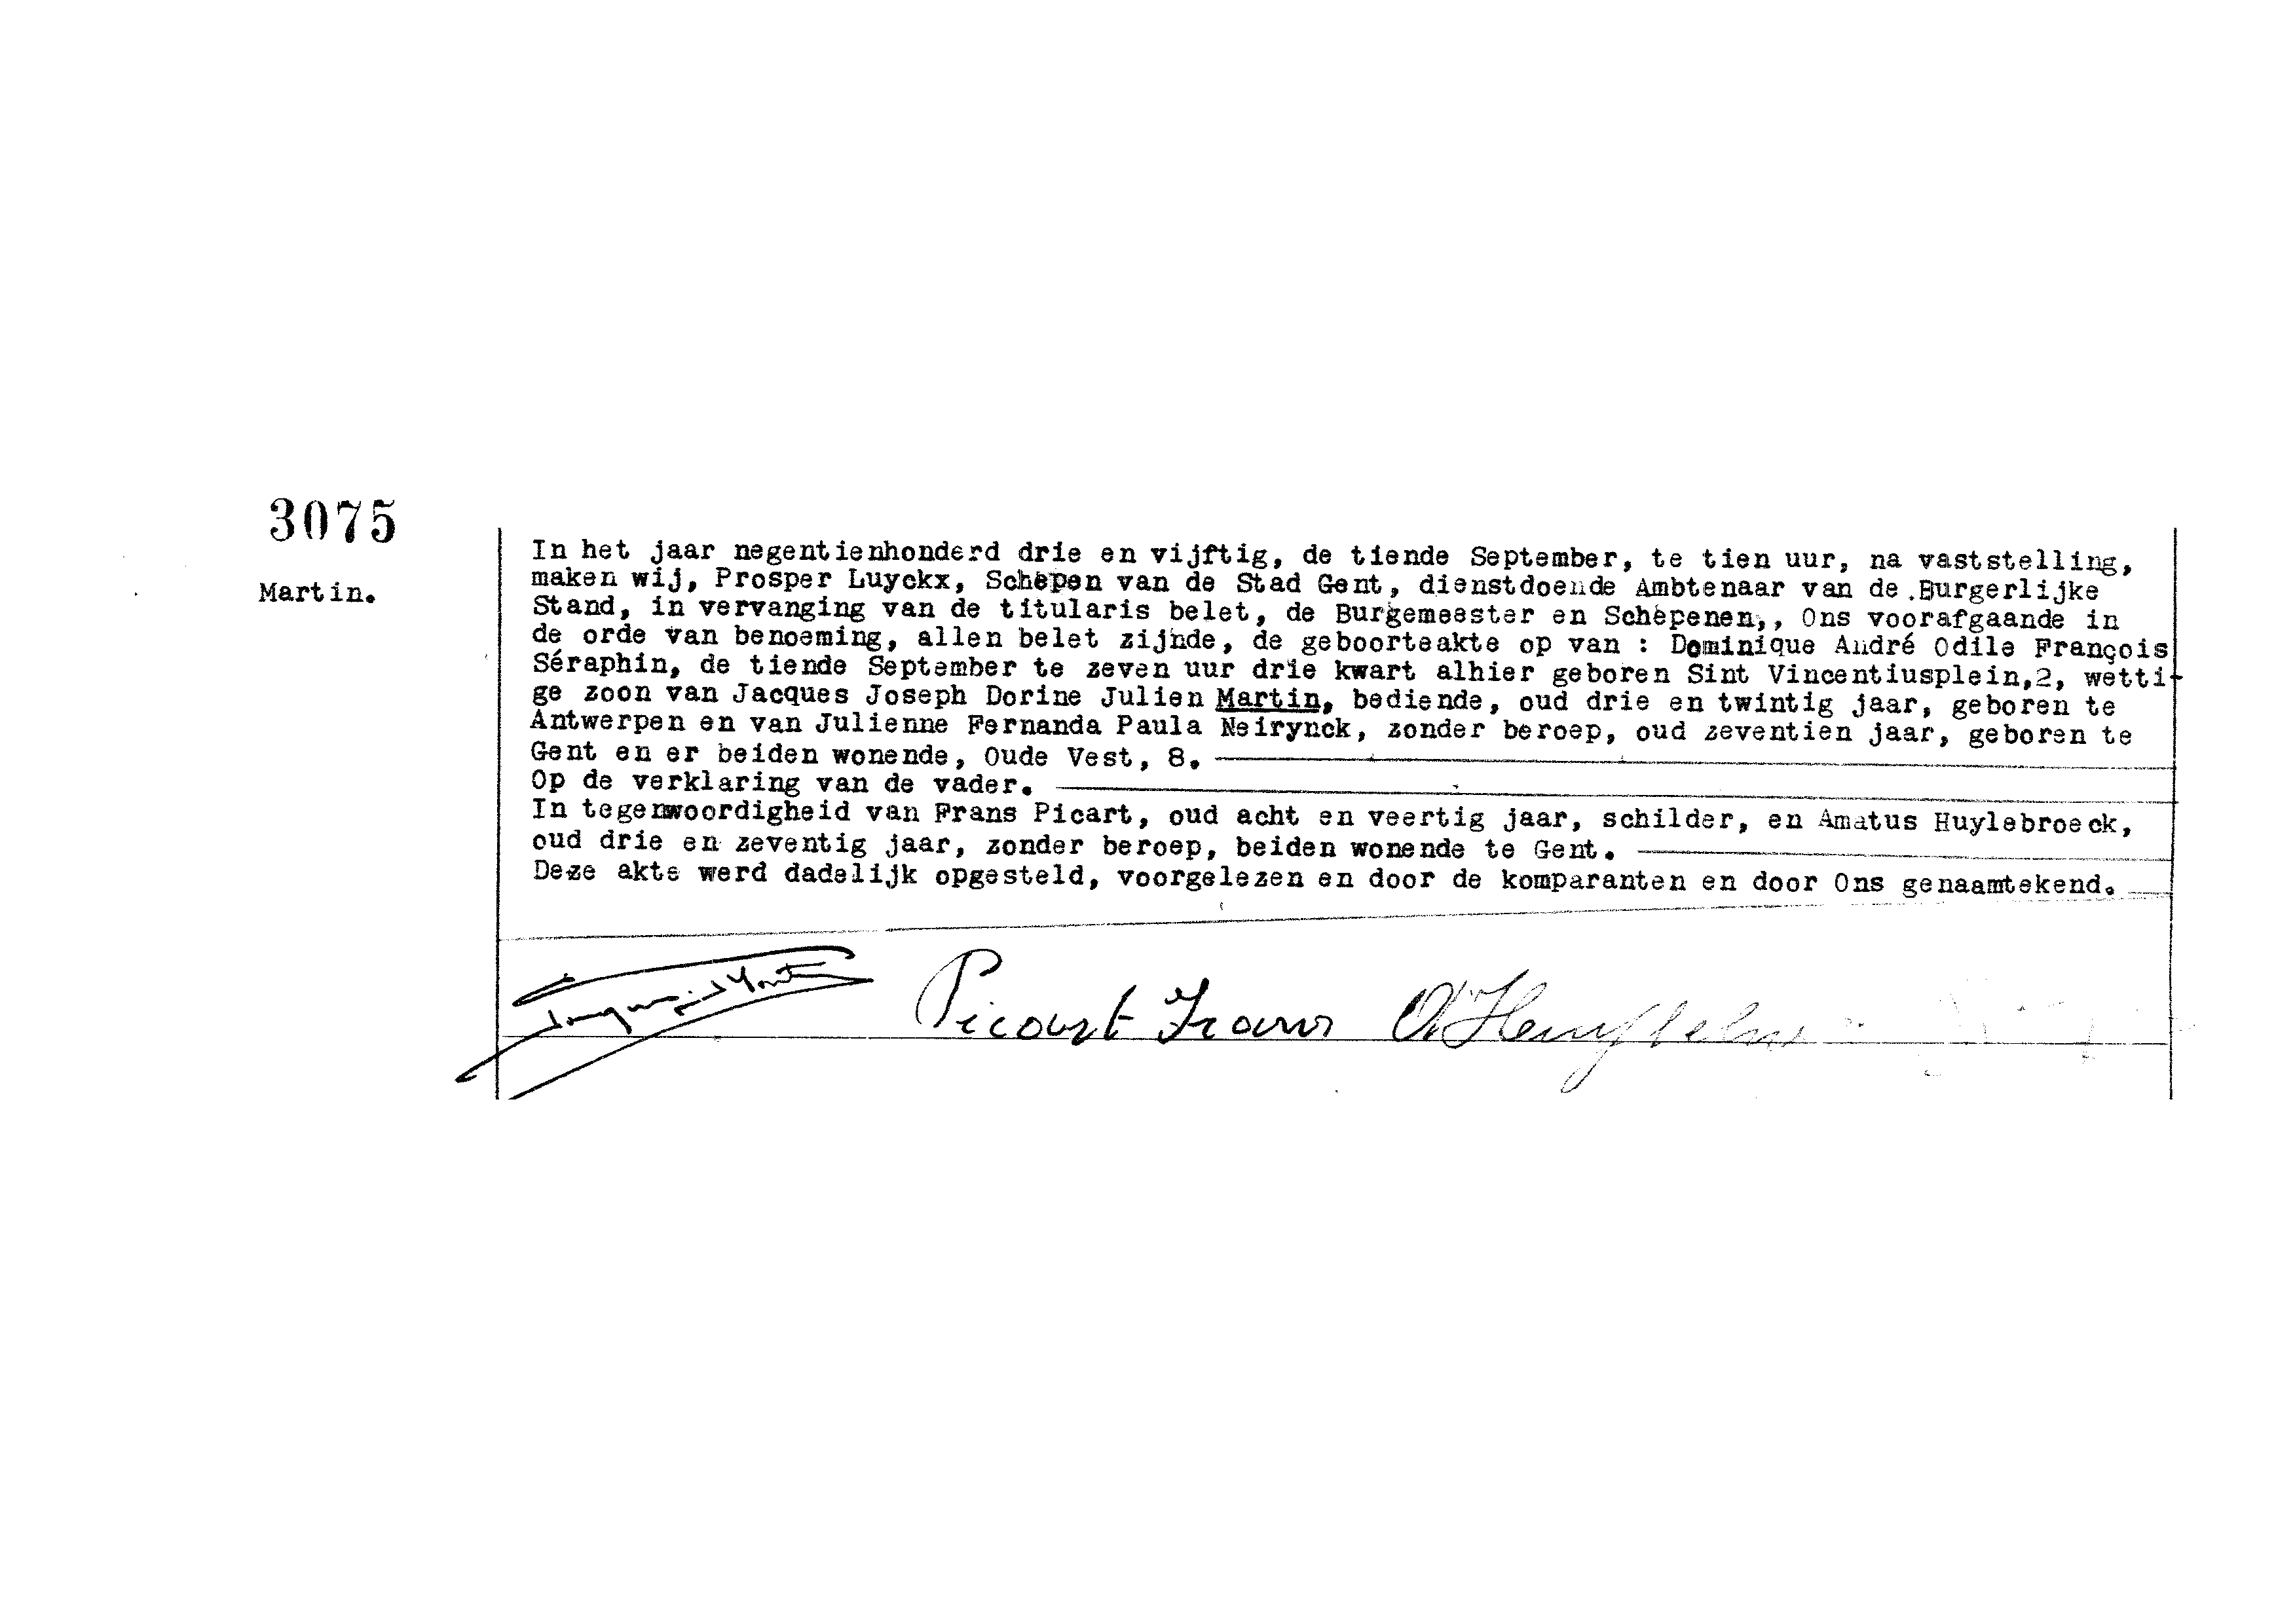 3075
Martin.
In het jaar negentienhonderd drie en vijftig, de tiende September, te tien uur, na vaststelling,
maken wij, Prosper Luyckx, Schepen van de Stad Gent, dienstdoende Ambtenaar van de Burgerlijke
Stand, in vervanging van de titularis belet, de Burgemeester en Schepenen,, Ons voorafgaande in
de orde van benoeming, allen belet zijnde, de geboorteakte op van : Dominique André Odile François
Séraphin, de tiende September te zeven uur drie kwart alhier geboren Sint Vincentiusplein,2, wetti-
ge zoon van Jacques Joseph Dorine Julien Martin, bediende, oud drie en twintig jaar, geboren te
Antwerpen en van Julienne Fernanda Paula Neirynck, zonder beroep, oud zeventien jaar, geboren te
Gent en er beiden wonende, Oude Vest, 8.
Op de verklaring van de vader.
In tegenwoordigheid van Frans Picart, oud acht en veertig jaar, schilder, en Amatus Huylebroeck,
oud drie en zeventig jaar, zonder beroep, beiden wonende te Gent.
Deze akte werd dadelijk opgesteld, voorgelezen en door de komparanten en door Ons genaamtekend.
Picart Frans